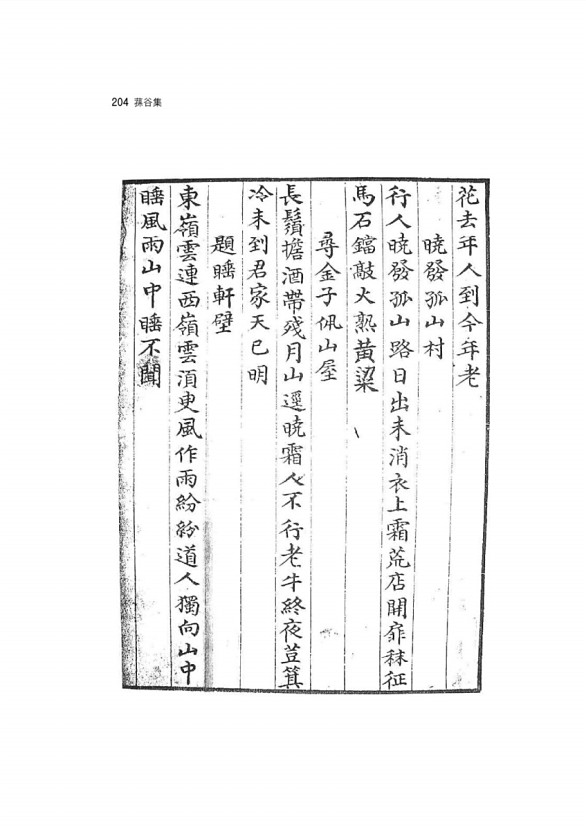 204 蓀谷集
花去年人到今年老
暁發孤山村
行人暁發孤山路日出未消衣上霜荒店開扉秣征
馬石鐺敲火熟黃粱
尋金子佩山屋
長鬚擔酒帶殘月山逕暁霜人不行老牛終夜荳箕
冷未到君家天已明
題睡軒壁
東嶺雲連西嶺雲湏臾風作雨紛紛道人獨向山中
睡風雨山中睡不聞